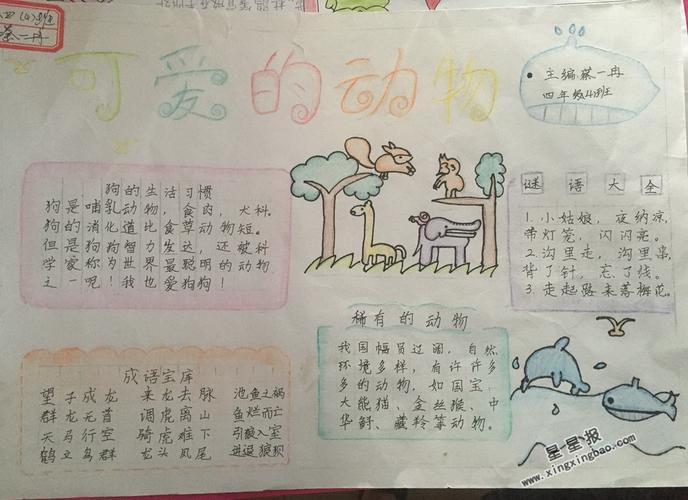 四(4)班
蔡一冉
可爱的动物
主编:蔡一冉
四年级(4)班
狗的生活习惯
狗是哺乳动物,食肉,犬科。
狗的消化道比食草动物短。
但是狗狗智力发达,还被科
学家称为世界最聪明的动物
之一呢!我也爱狗狗!
谜语大全
1.小姑娘,夜纳凉,
带灯笼,闪闪亮。
2.沟里走,沟里串,
背了针,忘了线。
3.走起路来落梅花。
稀有的动物
我国幅员辽阔,自然
环境多样,有许许多
多的动物,如国宝,
大熊猫、金丝猴、中
华鲟、藏羚等动物。
成语宝库
望子成龙 来龙去脉 池鱼之祸
群龙无首 调虎离山 鱼烂而亡
天马行空 骑虎难下 引狼入室
鹤立鸟群 龙头凤尾 进退狼狈
星星报
www.xingxingbao.com